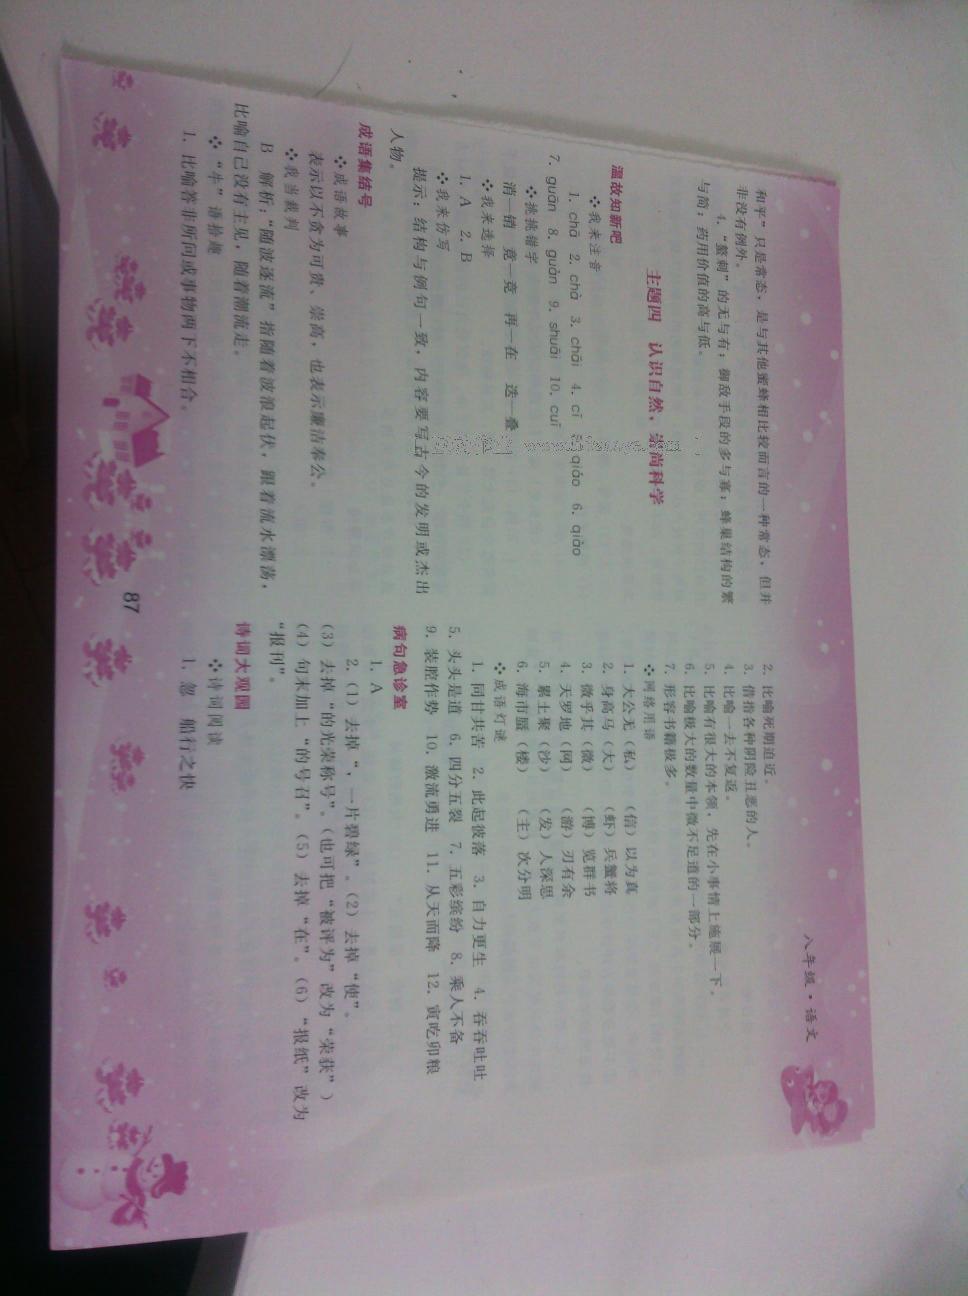 八年级·语文
和平”只是常态，是与其他蜜蜂相比较而言的一种常态，但并
非没有例外。
4.“螫刺”的无与有；御敌手段的多与寡；蜂巢结构的繁
与简；药用价值的高与低。
主题四 认识自然，崇尚科学
温故知新吧
❖我来注音
1. chā 2. chà 3. chāi 4. cī 5. qiáo 6. qiào
7. guān 8. guàn 9. shuāi 10. cuī
❖挑挑错字
消—销 竟—竞 再—在 迭—叠
❖我来选择
1. A 2. B
❖我来仿写
提示：结构与例句一致，内容要写古今的发明或杰出
人物。
成语集结号
❖成语故事
表示以不贪为可贵、崇高，也表示廉洁奉公。
❖我当裁判
B 解析：“随波逐流”指随着波浪起伏，跟着流水漂荡，
比喻自己没有主见，随着潮流走。
❖“牛”语拾趣
1. 比喻答非所问或事物两下不相合。
2. 比喻死期迫近。
3. 借指各种阴险丑恶的人。
4. 比喻一去不复返。
5. 比喻有很大的本领，先在小事情上施展一下。
6. 比喻极大的数量中微不足道的一部分。
7. 形容书籍极多。
❖网络用语
1. 大公无（私） （信）以为真
2. 身高马（大） （虾）兵蟹将
3. 微乎其（微） （博）览群书
4. 天罗地（网） （游）刃有余
5. 累土聚（沙） （发）人深思
6. 海市蜃（楼） （主）次分明
❖成语灯谜
1. 同甘共苦 2. 此起彼落 3. 自力更生 4. 吞吞吐吐
5. 头头是道 6. 四分五裂 7. 五彩缤纷 8. 乘人不备
9. 装腔作势 10. 激流勇进 11. 从天而降 12. 寅吃卯粮
病句急诊室
1. A
2.（1）去掉“，一片碧绿”。（2）去掉“使”。
（3）去掉“的光荣称号”。（也可把“被评为”改为“荣获”）
（4）句末加上“的号召”。（5）去掉“在”。（6）“报纸”改为
“报刊”。
诗词大观园
❖诗词阅读
1. 忽 船行之快
87